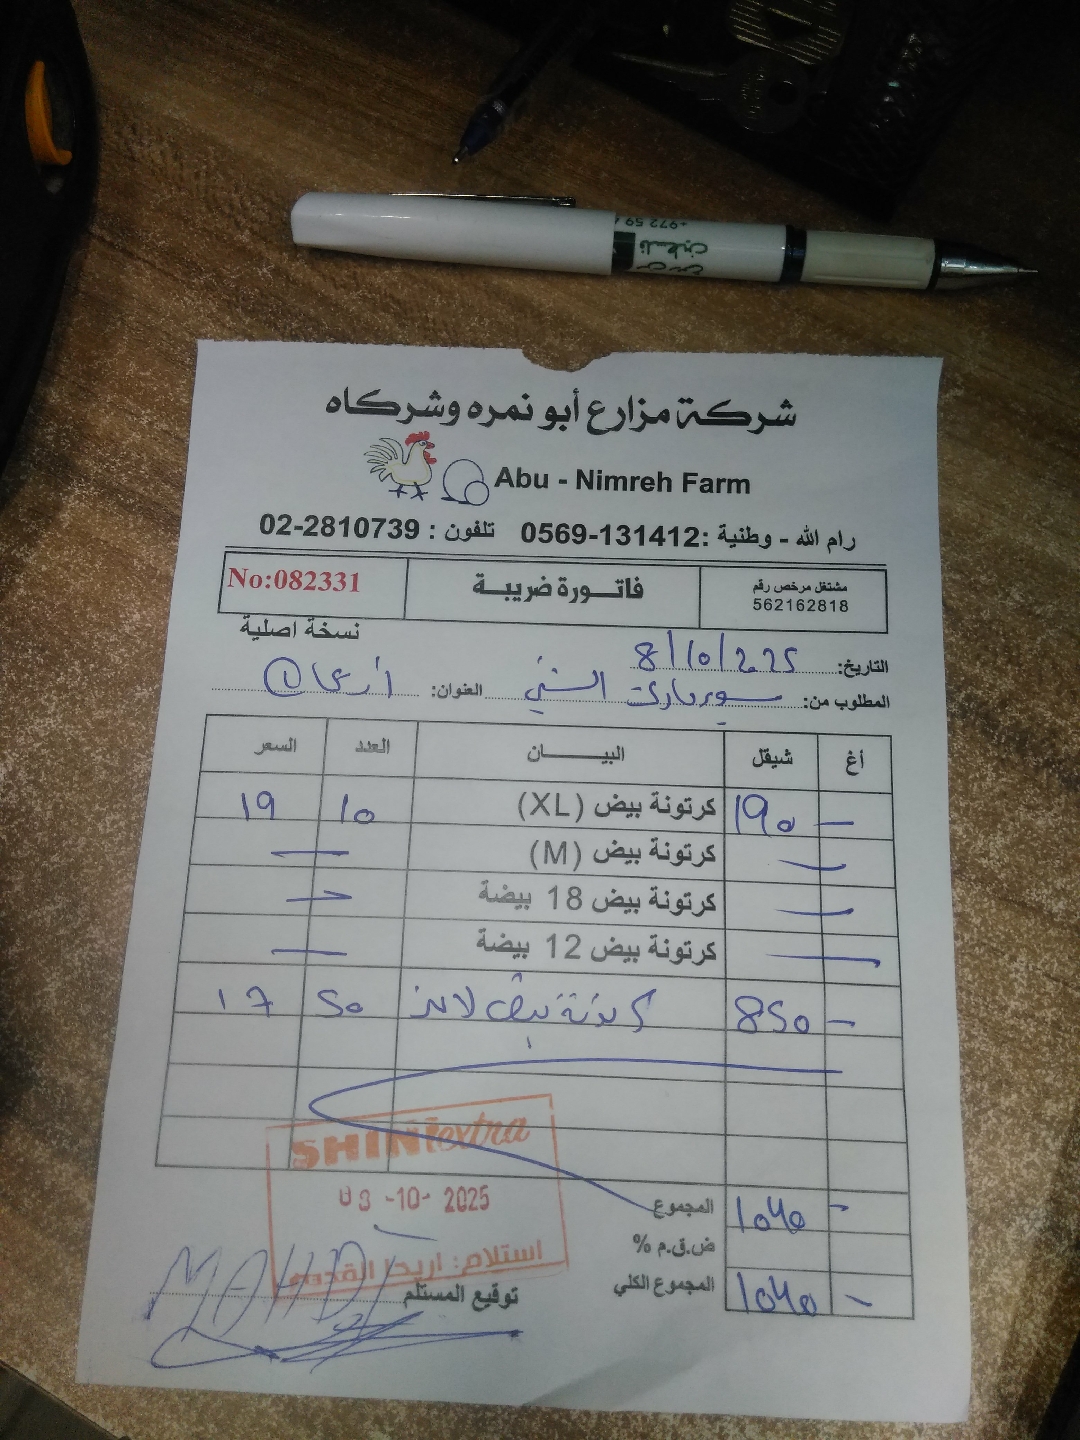 +972 59
فلسطين
شركة مزارع أبو نمره وشركاه
Abu - Nimreh Farm
رام الله - وطنية :0569-131412 تلفون : 02-2810739
مشتغل مرخص رقم
562162818
فاتـــورة ضريبـــة
No:082331
نسخة اصلية
التاريخ: 8/10/2025
المطلوب من: الشني العنوان: أريحا
أغ شيقل البيـــــــان العدد السعر
— 190 كرتونة بيض (XL) 10 19
— كرتونة بيض (M) —
— كرتونة بيض 18 بيضة —
— كرتونة بيض 12 بيضة —
— 850 كرتونة بيض لارج 50 17
المجموع 1040 -
ض.ق.م %
المجموع الكلي 1040 -
SHINI extra
08 -10- 2025
استلام: اريحا القديمة
توقيع المستلم MAHDI